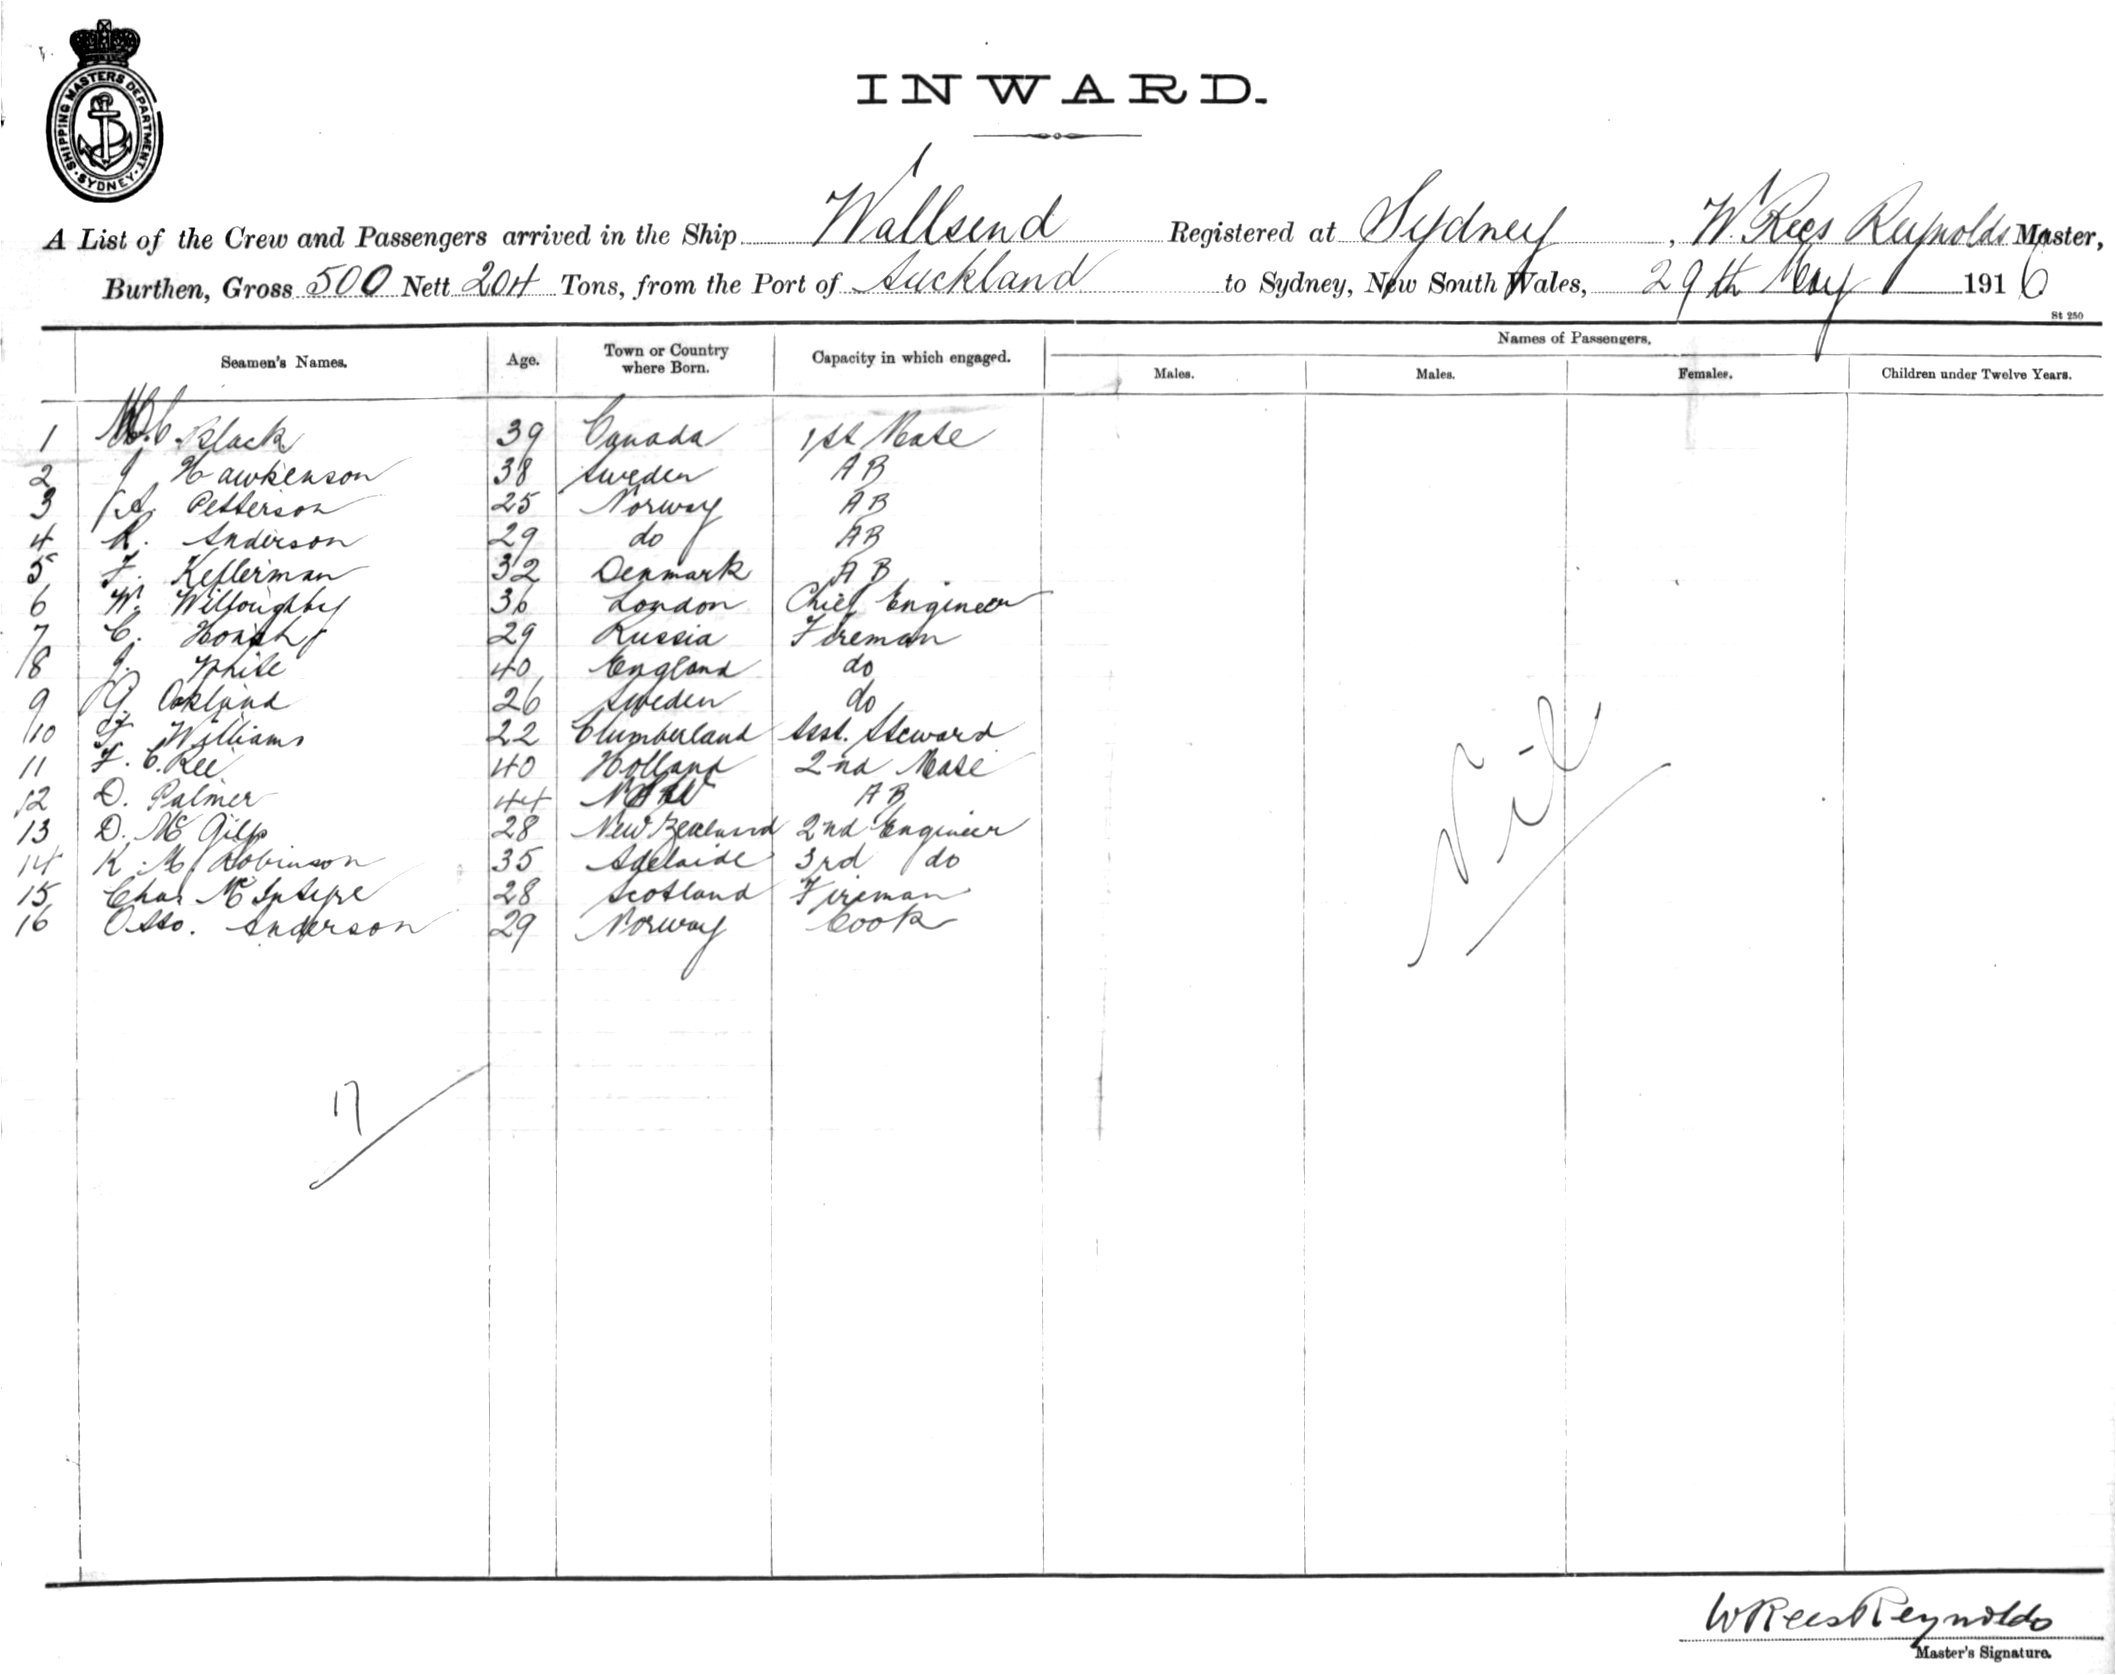 SHIPPING MASTERS DEPARTMENT. SYDNEY.
INWARD.
A List of the Crew and Passengers arrived in the Ship Wallsend Registered at Sydney, W. Rees Reynolds Master,
Burthen, Gross 500 Nett 204 Tons, from the Port of Auckland to Sydney, New South Wales, 29th May 1916
St 250
Seamen's Names. Age. Town or Country where Born. Capacity in which engaged. Names of Passengers.
Males. Males. Females. Children under Twelve Years.
1 C. Black 39 Canada 1st Mate
2 J Hawkenson 38 Sweden AB
3 A. Petterson 25 Norway AB
4 R. Anderson 29 do AB
5 F. Kellerman 32 Denmark AB
6 W. Willoughby 36 London Chief Engineer
7 C. 29 Russia Fireman
8 J. White 40 England do
9 G. Oakland 26 Sweden do
10 F. Williams 22 Clumberland Asst. Steward
11 F. C. Ree 40 Holland 2nd Mate
12 D. Palmer 44 NSW AB
13 D. Mc Gilp 28 New Zealand 2nd Engineer
14 K. M. Robinson 35 Adelaide 3rd do
15 Chas Mc Intyre 28 Scotland Fireman
16 Otto. Anderson 29 Norway Cook
Nil
17
W Rees Reynolds
Master's Signature.